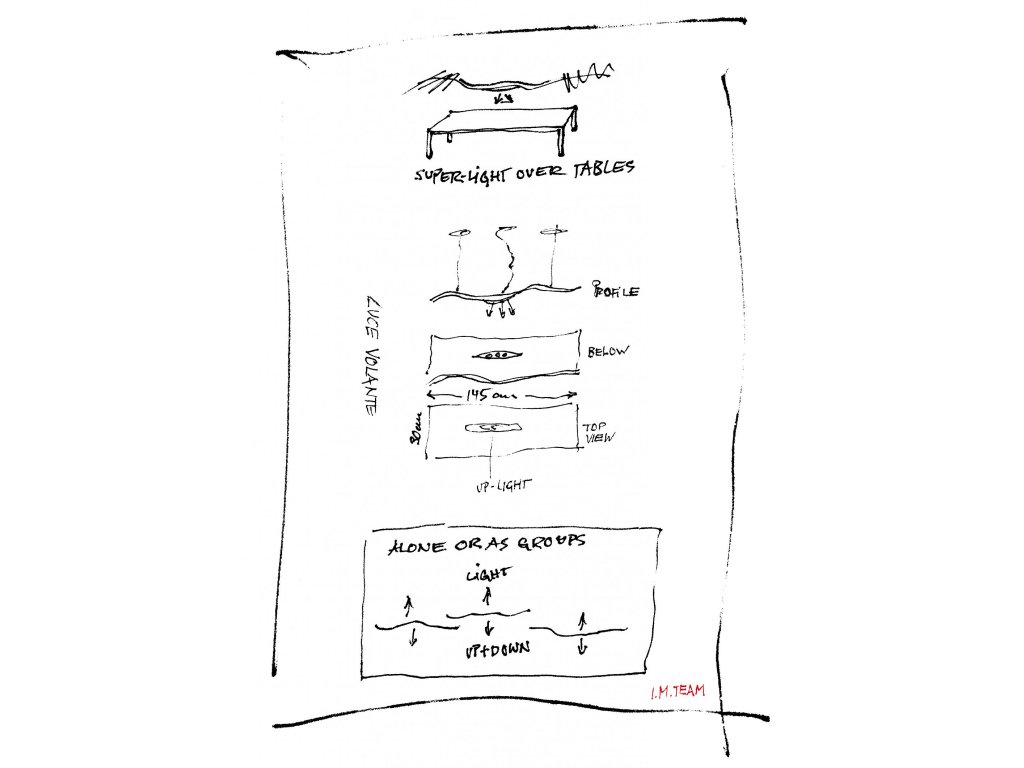 SUPER-LIGHT OVER TABLES
PROFILE
LUCE VOLANTE
BELOW
145 cm
30 cm
TOP
VIEW
UP-LIGHT
ALONE OR AS GROUPS
LIGHT
UP+DOWN
I.M.TEAM